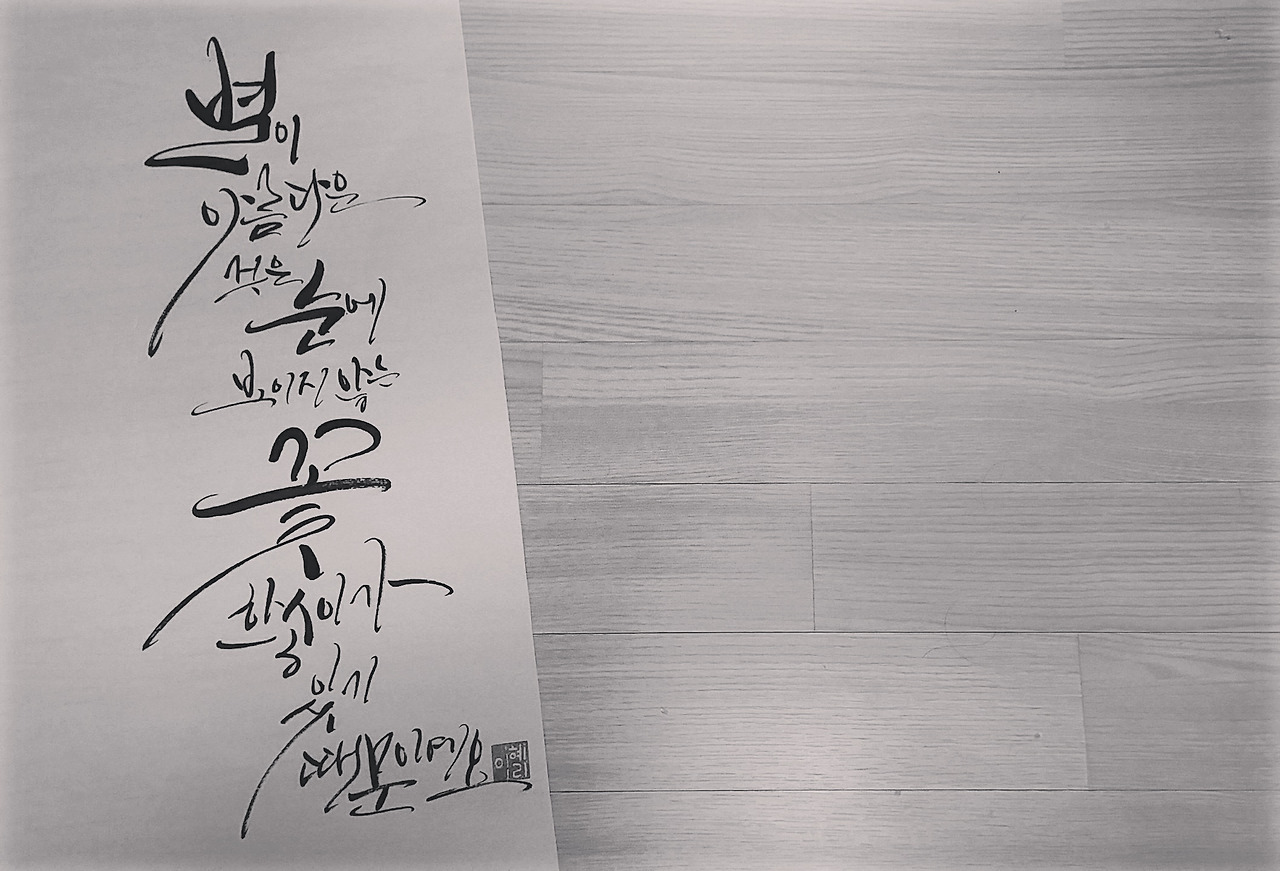 별이
아름다운
것은 눈에
보이지 않는
꽃
한송이가
있기
때문이에요
이혜리